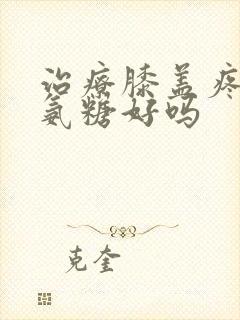 治療膝盖疼
氨糖好吗
克奎